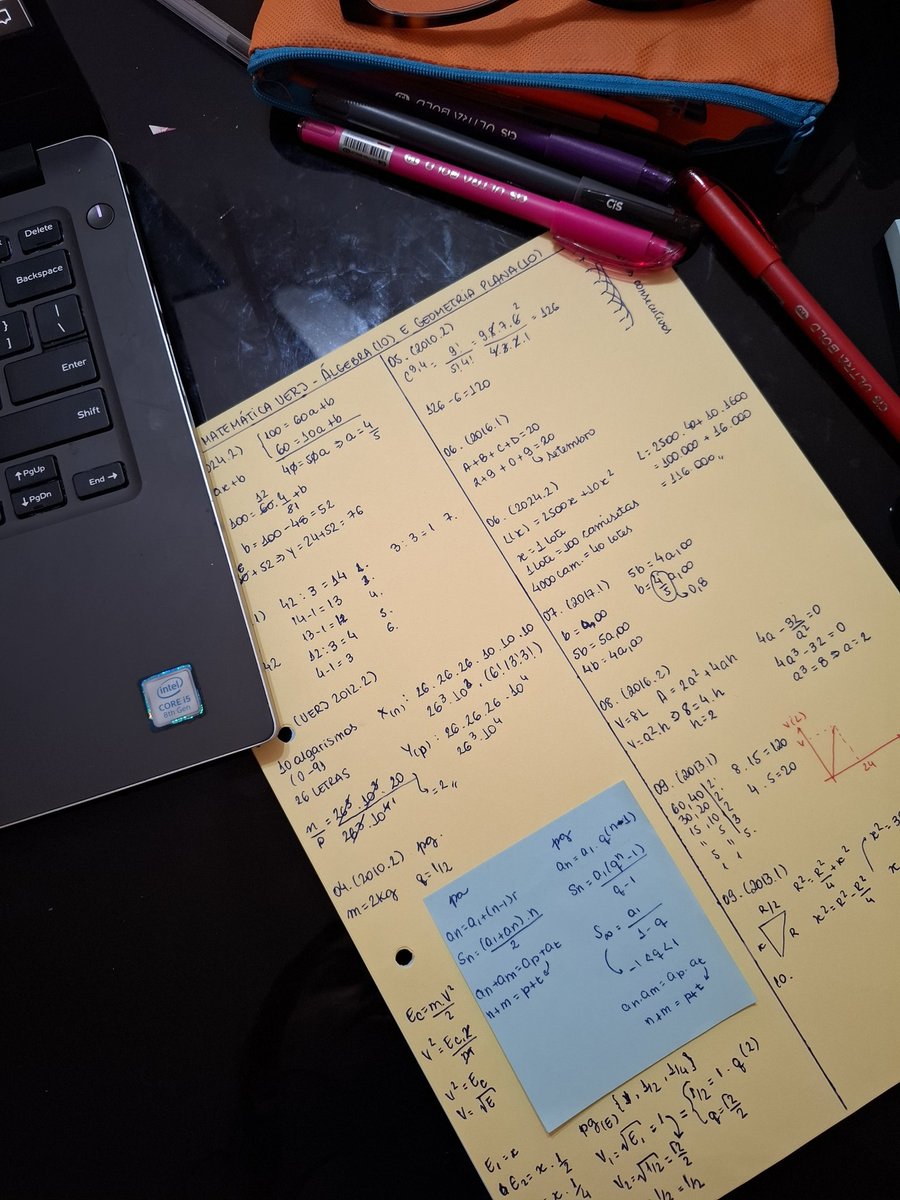 Delete
Backspace
Enter
Shift
PgUp
PgDn
End
intel
CORE i5
8th Gen
CiS ULTRA BOLD
CiS ULTRA BOLD
CiS
CiS ULTRA BOLD
MATEMÁTICA UERJ - ÁLGEBRA (10) E GEOMETRIA PLANA (10)
consecutivos
100 = 60a + b
60 = 10a + b
40 = 50a ⇒ a = 4/5
ax + b
b = 100 - 48 = 52
+ 52 ⇒ Y = 24 + 52 = 76
42 : 3 = 14
14 - 1 = 13
13 - 1 = 12
12 : 3 = 4
4 - 1 = 3
3 : 3 = 1
1.
4.
5.
6.
7.
(UERJ 2012.2)
10 algarismos
(0-9)
26 LETRAS
X(n): 26.26.26.10.10.10
Y(p): 26.26.26.10⁴
26³.10⁴
n/p = 26³.10³.20 / 26³.10⁴
= 2,,
04. (2010.2) pg
m = 2kg q = 1/2
Ec = m.V²/2
V² = Ec
V = √E
E1 = x
E2 = x . 1/2
x . 1/4
pa
an = a1 + (n-1)r
Sn = (a1 + an).n / 2
an + am = ap + at
n + m = p + t
pg
an = a1 . q(n-1)
Sn = a1(qⁿ - 1) / q - 1
S∞ = a1 / 1 - q
-1 < q < 1
an . am = ap . at
n + m = p + t
pg(E) {1, 1/2, 1/4}
V1 = √E1 = 1
V2 = √1/2 = √2/2
q = √2/2
05. (2010.2)
C9,4 = 9!/5!4! = 9.8.7.6/4.3.2.1 = 126
126 - 6 = 120
06. (2016.1)
A + B + C + D = 20
2 + 9 + 0 + 9 = 20
setembro
06. (2024.2)
L(x) = 2500x + 10x²
x = 1 lote
1 lote = 100 camisetas
4000 cam = 40 lotes
L = 2500.40 + 10.1600
= 100.000 + 16.000
= 116.000,,
07. (2017.1)
b = a,00
5b = 5a,00
4b = 4a,00
5b = 4a,00
b = 4/5 a,00
0,8
08. (2016.2)
V = 8L A = 2a² + 4ah
V = a².h ⇒ 8 = 4.h
h = 2
4a - 32/a² = 0
4a³ - 32 = 0
a³ = 8 ⇒ a = 2
09. (2013.1)
60, 40 | 2
30, 20 | 2
15, 10 | 2
15, 5 | 3
5, 5 | 5
1 1
8 . 15 = 120
4 . 5 = 20
V(L)
V
24
09. (2013.1)
R/2
x
R
R² = R²/4 + x²
x² = R² - R²/4
10.